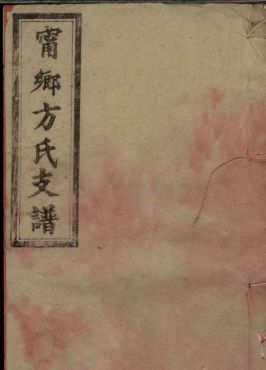 甯鄉方氏支譜